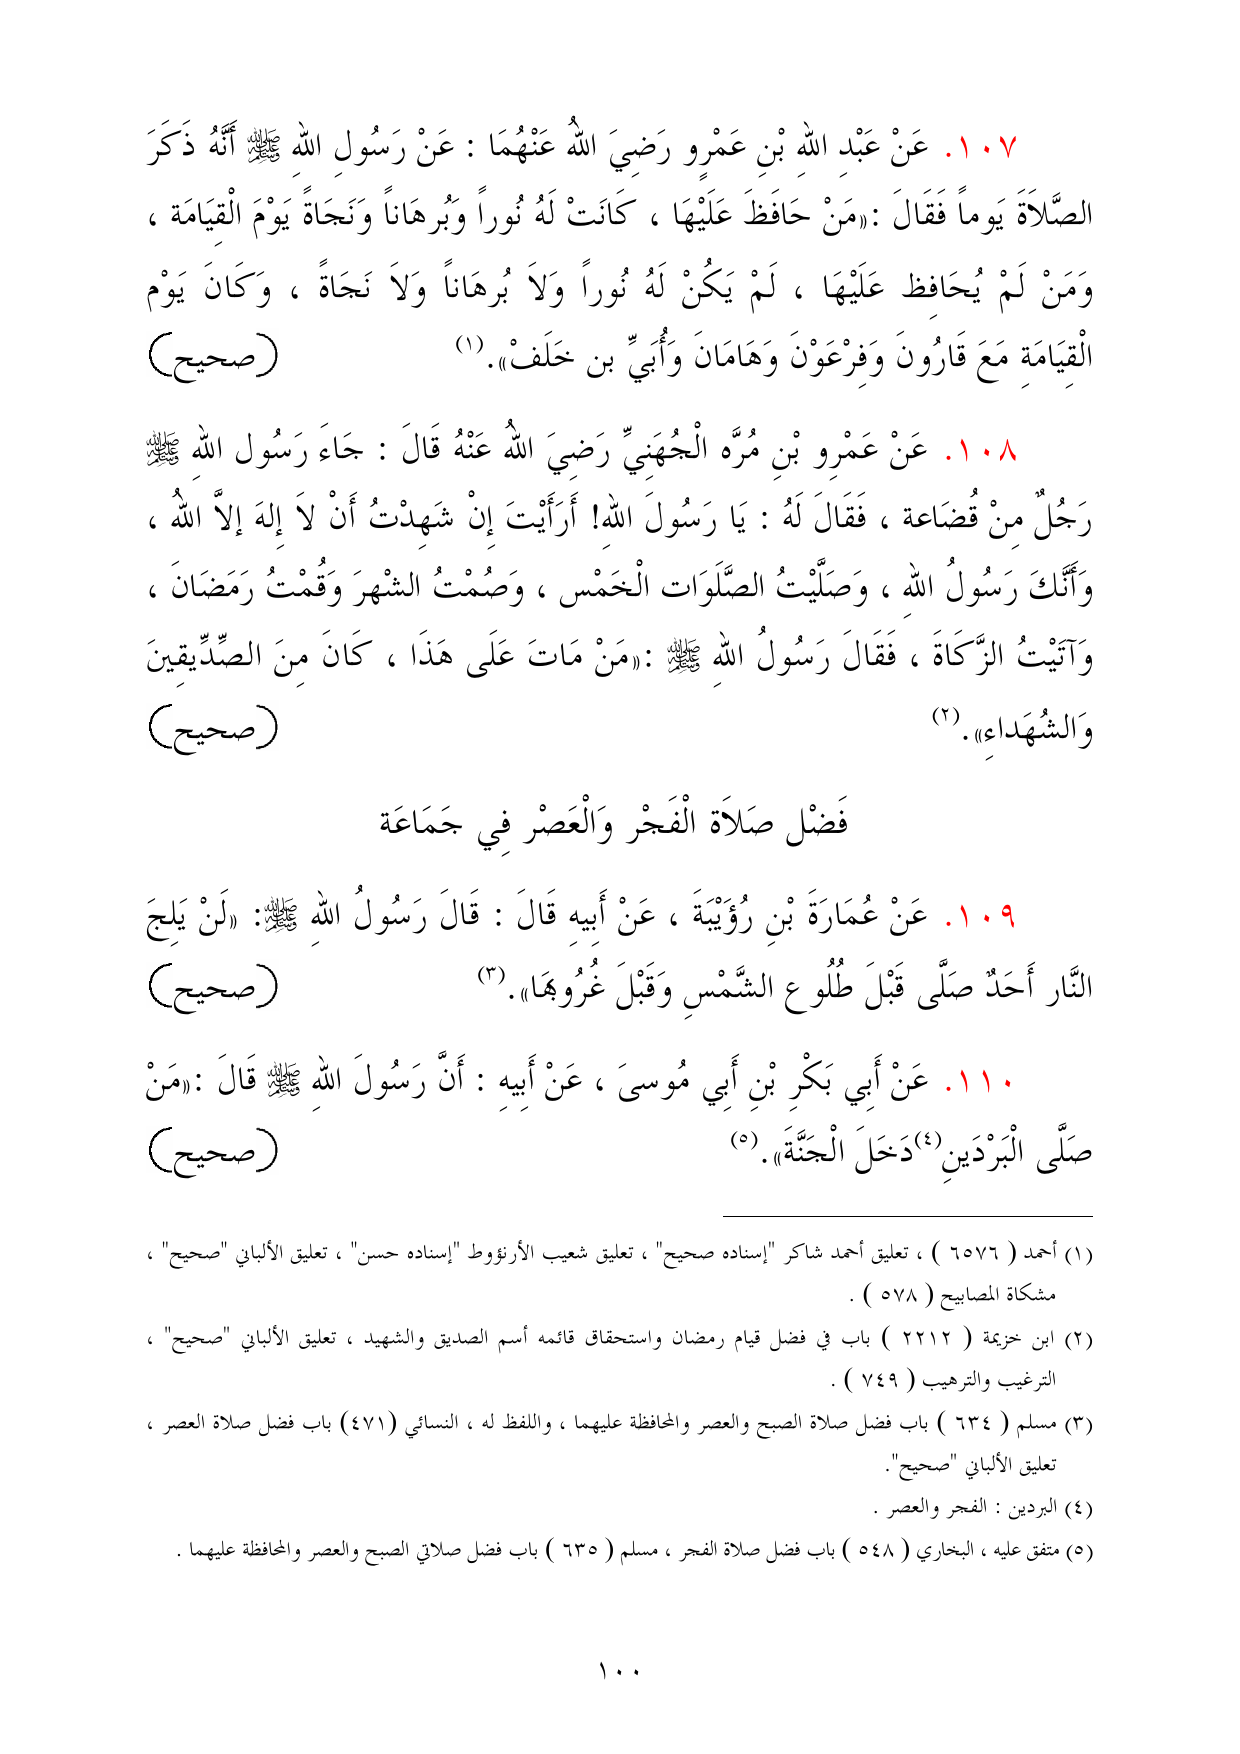 ١٠٧. عَنْ عَبْدِ اللهِ بْنِ عَمْرٍو رَضِيَ اللهُ عَنْهُمَا : عَنْ رَسُولِ اللهِ ﷺ أَنَّهُ ذَكَرَ
الصَّلاَةَ يَوماً فَقَالَ :«مَنْ حَافَظَ عَلَيْهَا ، كَانَتْ لَهُ نُوراً وَبُرهَاناً وَنَجَاةً يَوْمَ الْقِيَامَة ،
وَمَنْ لَمْ يُحَافِظ عَلَيْهَا ، لَمْ يَكُنْ لَهُ نُوراً وَلاَ بُرهَاناً وَلاَ نَجَاةً ، وَكَانَ يَوْم
الْقِيَامَةِ مَعَ قَارُونَ وَفِرْعَوْنَ وَهَامَانَ وَأُبَيِّ بن خَلَفْ».(١) (صحيح)
١٠٨. عَنْ عَمْرِو بْنِ مُرَّه الْجُهَنِيِّ رَضِيَ اللهُ عَنْهُ قَالَ : جَاءَ رَسُول اللهِ ﷺ
رَجُلٌ مِنْ قُضَاعة ، فَقَالَ لَهُ : يَا رَسُولَ اللهِ! أَرَأَيْتَ إِنْ شَهِدْتُ أَنْ لاَ إِلهَ إِلاَّ اللهُ ،
وَأَنَّكَ رَسُولُ اللهِ ، وَصَلَّيْتُ الصَّلَوَات الْخَمْس ، وَصُمْتُ الشْهرَ وَقُمْتُ رَمَضَانَ ،
وَآتَيْتُ الزَّكَاةَ ، فَقَالَ رَسُولُ اللهِ ﷺ :«مَنْ مَاتَ عَلَى هَذَا ، كَانَ مِنَ الصِّدِّيقِينَ
وَالشُهَداءِ».(٢) (صحيح)
فَضْل صَلاَة الْفَجْر وَالْعَصْر فِي جَمَاعَة
١٠٩. عَنْ عُمَارَةَ بْنِ رُؤَيْبَةَ ، عَنْ أَبِيهِ قَالَ : قَالَ رَسُولُ اللهِ ﷺ: «لَنْ يَلِجَ
النَّار أَحَدٌ صَلَّى قَبْلَ طُلُوعِ الشَّمْسِ وَقَبْلَ غُرُوبَهَا».(٣) (صحيح)
١١٠. عَنْ أَبِي بَكْرِ بْنِ أَبِي مُوسىَ ، عَنْ أَبِيهِ : أَنَّ رَسُولَ اللهِ ﷺ قَالَ :«مَنْ
صَلَّى الْبَرْدَينِ(٤)دَخَلَ الْجَنَّةَ».(٥) (صحيح)
(١) أحمد ( ٦٥٧٦ ) ، تعليق أحمد شاكر "إسناده صحيح" ، تعليق شعيب الأرنؤوط "إسناده حسن" ، تعليق الألباني "صحيح" ،
مشكاة المصابيح ( ٥٧٨ ) .
(٢) ابن خزيمة ( ٢٢١٢ ) باب في فضل قيام رمضان واستحقاق قائمه أسم الصديق والشهيد ، تعليق الألباني "صحيح" ،
الترغيب والترهيب ( ٧٤٩ ) .
(٣) مسلم ( ٦٣٤ ) باب فضل صلاة الصبح والعصر والمحافظة عليهما ، واللفظ له ، النسائي (٤٧١) باب فضل صلاة العصر ،
تعليق الألباني "صحيح".
(٤) البردين : الفجر والعصر .
(٥) متفق عليه ، البخاري ( ٥٤٨ ) باب فضل صلاة الفجر ، مسلم ( ٦٣٥ ) باب فضل صلاتي الصبح والعصر والمحافظة عليهما .
١٠٠